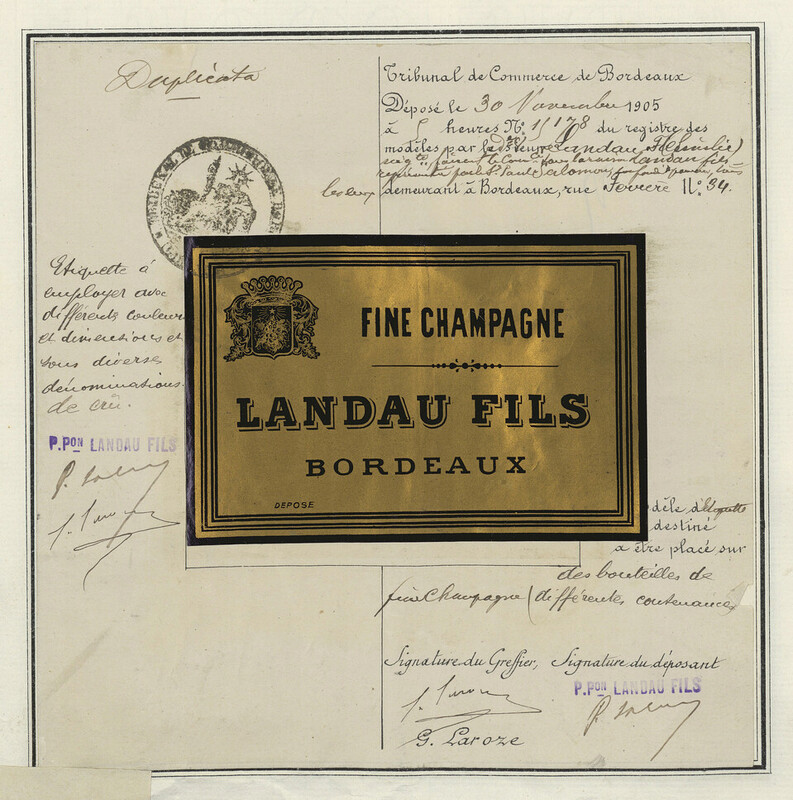 Duplicata
Tribunal de Commerce de Bordeaux
Déposé le 30 Novembre 1905
à 5 heures No. 15178 du registre des
modèles par le sieur Landau
Landau fils
représenté par
demeurant à Bordeaux, rue Ferrère No. 34.
Etiquette à
employer avec
différentes couleurs
et dimensions et
sous diverses
dénominations
de crû.
P.PON LANDAU FILS
FINE CHAMPAGNE
LANDAU FILS
BORDEAUX
DEPOSE
dèle d'étiquette
destiné
a être placé sur
des bouteilles de
fine Champagne (différentes contenances)
Signature du Greffier, Signature du déposant
P.PON LANDAU FILS
G. Laroze